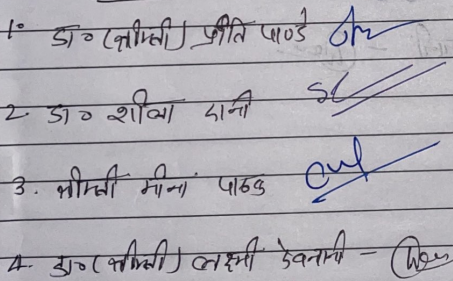 1. डा० (श्रीमती) प्रीति पाण्डे
2. डा० शीला दानी
3. श्रीमती मीना पाठक
4. डा० (श्रीमती) लक्ष्मी देवनानी -